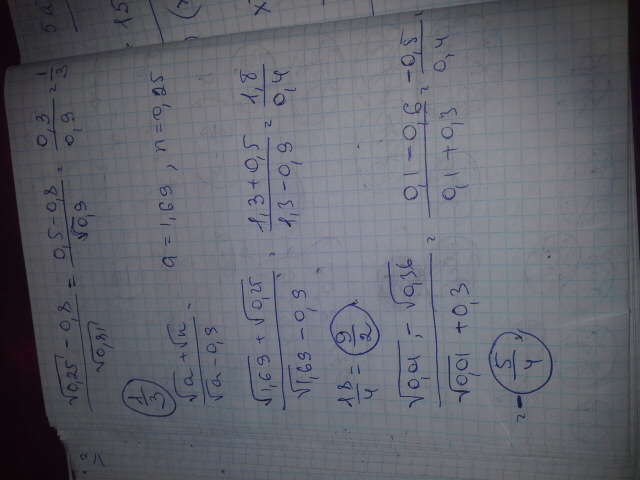 (√0,25 - 0,8)/√0,81 = (0,5-0,8)/√0,9 = 0,3/0,9 = 1/3
1/3
(√a + √n)/(√a - 0,9) a = 1,69, n = 0,25
(√1,69 + √0,25)/(√1,69 - 0,9) = (1,3+0,5)/(1,3-0,9) = 1,8/0,4
18/4 = 9/2
(√0,01 - √0,36)/(√0,01 + 0,3) = (0,1-0,6)/(0,1+0,3) = -0,5/0,4 =
= -5/4